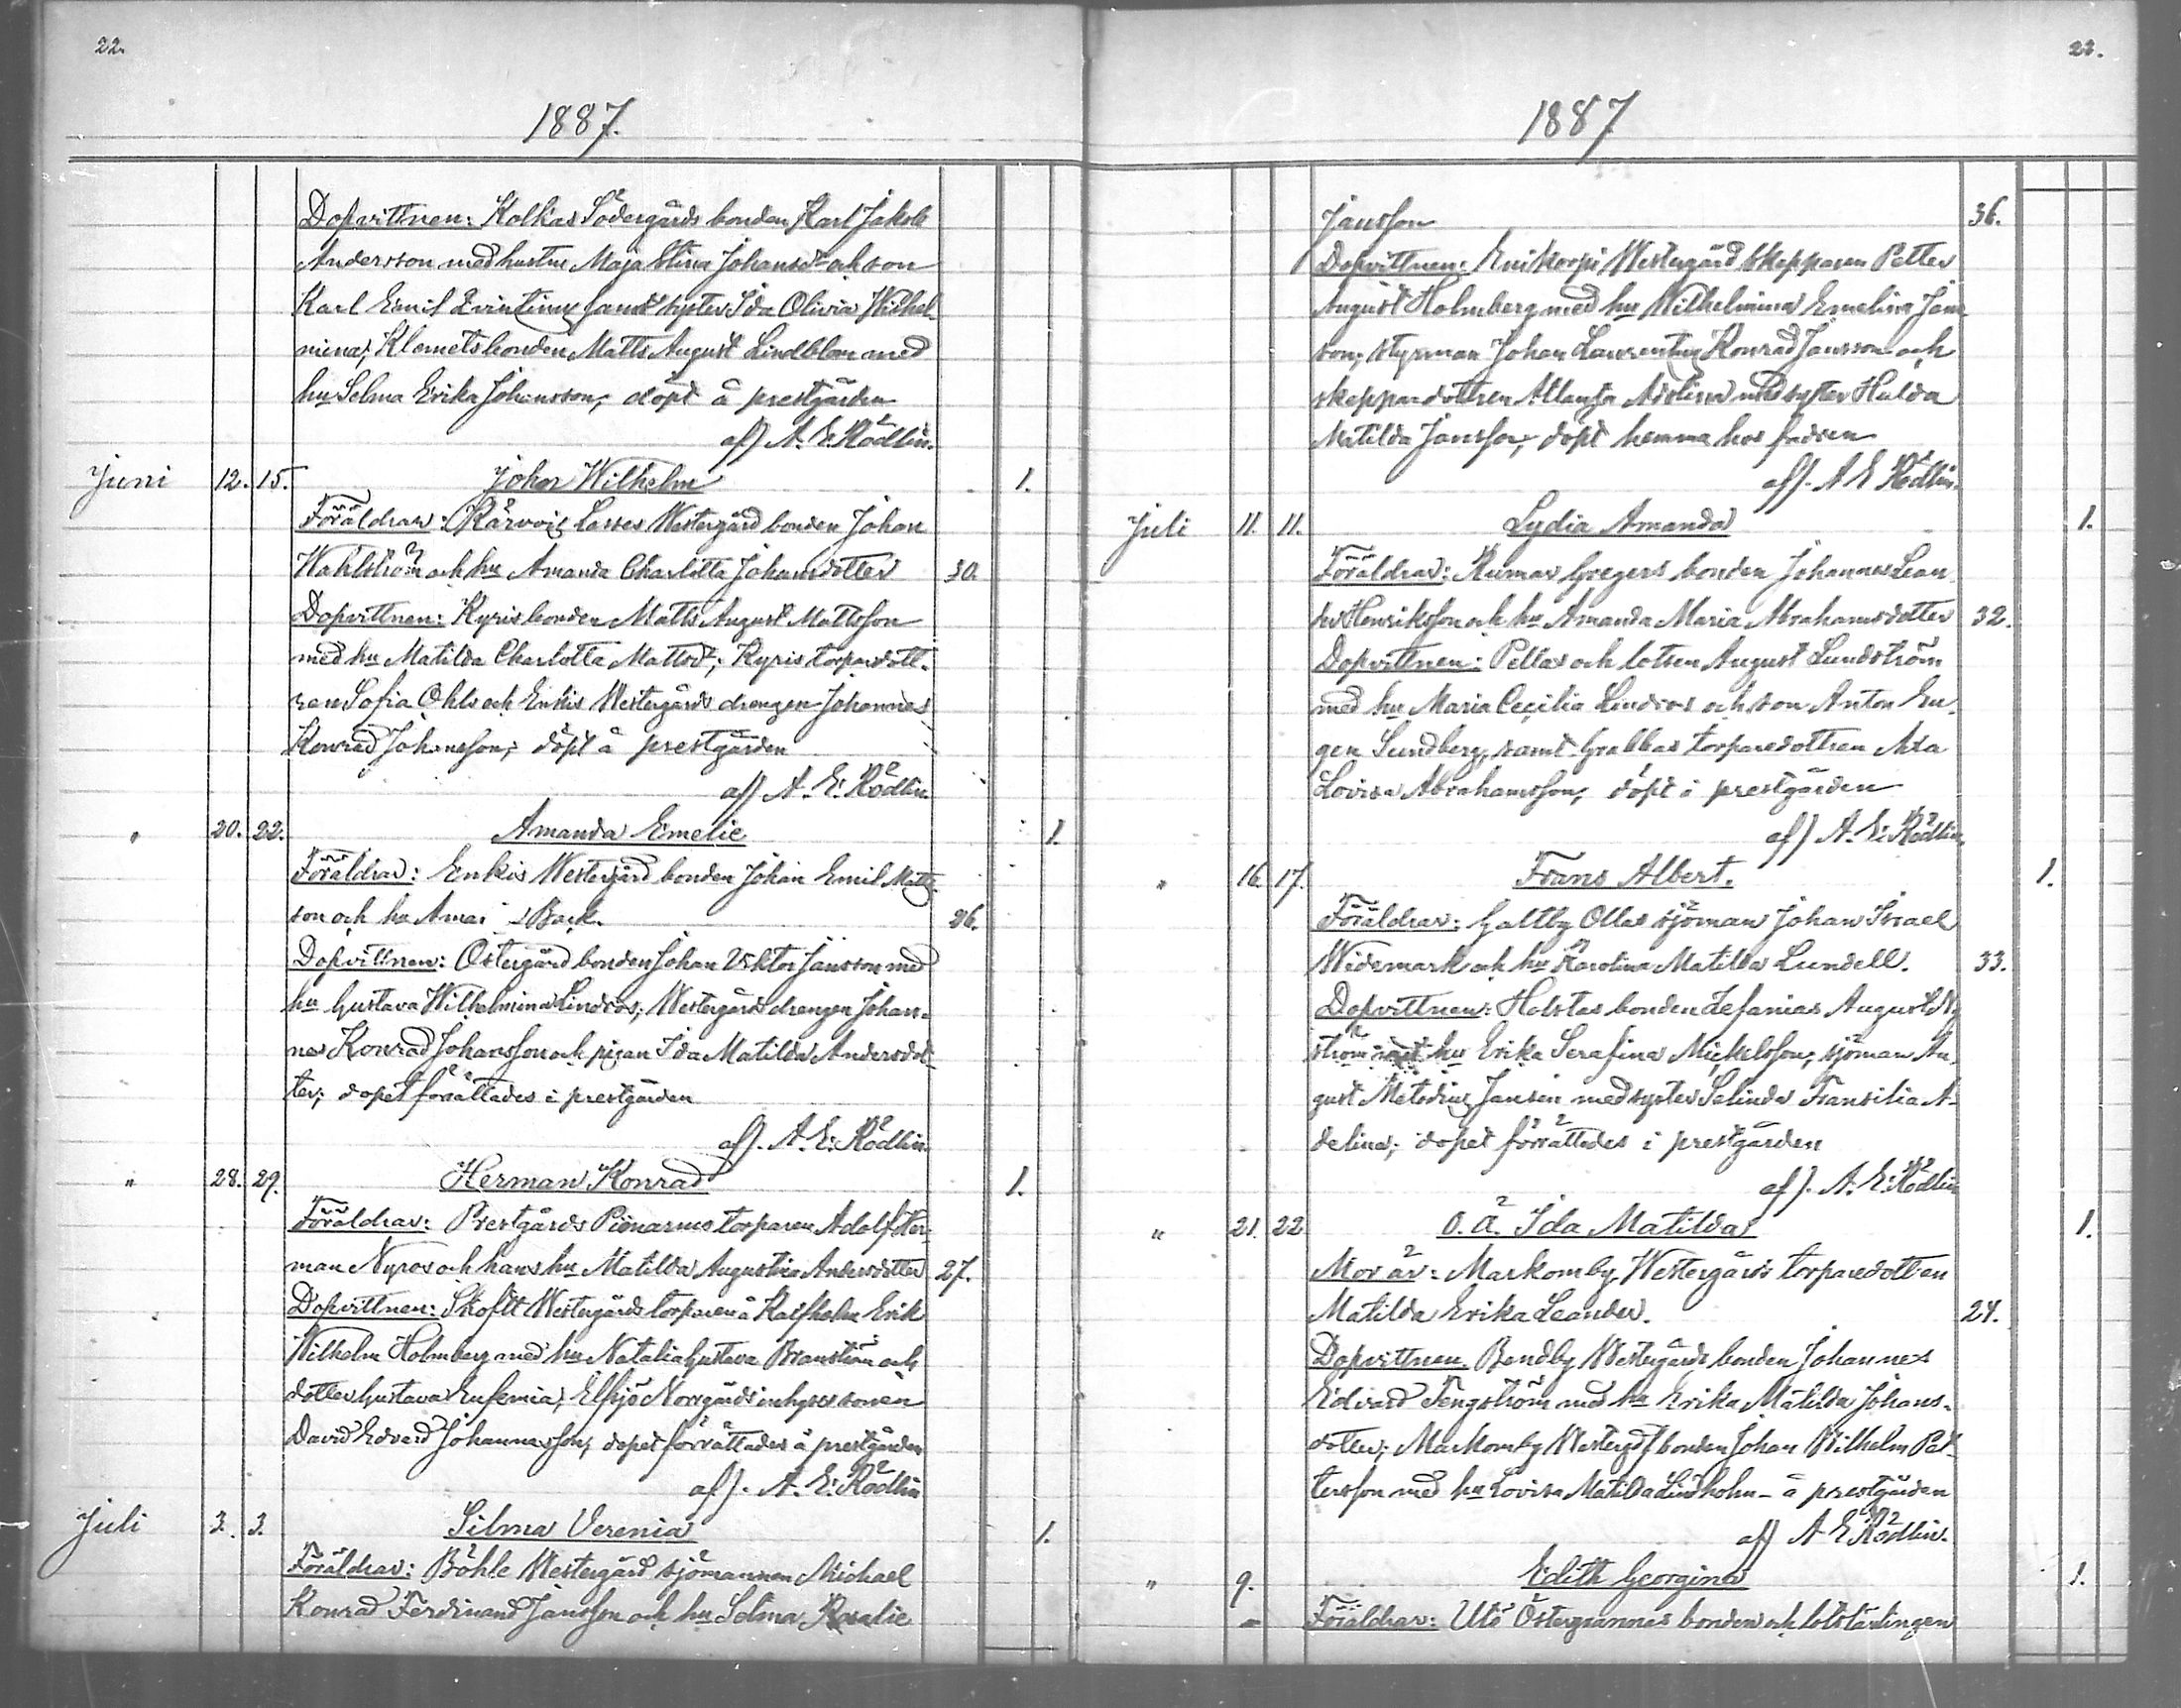 22.
1887.
Dopvittnen: Kolkas Södergårds bonden Karl Jakob
Andersson med hustru Maja Stina Johansdr och son
Karl Emil samt syster Ida Olivia Wilhel-
mina; Klemetsbonden Matts August Lindblom med
hu Selma Erika Johansson; döpt å prestgården
aff A. E. Rödlin.
Juni 12. 15. Johan Wilhelm 1.
Föräldrar: Lasses Westergård bonden Johan
Wahlström och hu Amanda Charlotta Johansdotter 30.
Dopvittnen: Kyrisbonden Matts August Mattsson
med hu Matilda Charlotta Mattsdr; Kyris torparedott-
ren Sofia Ohls och Enkis Westergårds drengen Johannes
Konrad Johansson; döpt å prestgården
aff A. E. Rödlin.
" 20. 22. Amanda Emelie 1.
Föräldrar: Enkis Westergård bonden Johan Emil Matts-
son och hu Back. 26.
Dopvittnen: Östergård bonden Johan Viktor Jansson med
hu Gustava Wilhelmina Lindros; Westergårds drengen Johan-
nes Konrad Johansson och pigan Ida Matilda Andersdot-
ter; dopet förättades i prestgården
aff. A. E. Rödlin.
" 28. 29. Herman Konrad 1.
Föräldrar: Prestgårds torparen Adolf Her-
man Nyros och hans hu Matilda Augustina Andersdotter 27.
Dopvittnen: Westergårds torparen å Kalfholm Erik
Wilhelm Holmberg med hu Natalia Gustava Branström och
dotter Gustava Eufemia; Elfsjö Norrgårds inhyses sonen
David Edvard Johannesson; dopet förrättades å prestgården
aff. A. E. Rödlin
Juli 3. 3. Silma Verenia 1.
Föräldrar: Böhle Westergård sjömannen Michael
Konrad Ferdinand Jansson och hu Selma Rosalie
22.
1887
Jansson 36.
Dopvittnen: Westergård Skepparen Petter
August Holmberg med hu Wilhelmina Emelina Jans-
son; styrman Johan Laurentius Konrad Jansson och
skeppardottren med syster Hulda
Matilda Jansson; döpt hemma hos fadren
aff. A E Rödlin.
Juli 11. 11. Lydia Amanda 1.
Föräldrar: Rumar Gregers bonden Johannes Lean-
der Henriksson och hu Amanda Maria Abrahamsdotter 32.
Dopvittnen: Pellas och lotsen August Lundström
med hu Maria Cecilia Lindros och son Anton Eu-
gen Sundberg, samt Grabbas torparedottren
Lovisa Abrahamsson; döpt i prestgården
aff A. E. Rödlin.
" 16. 17. Frans Albert. 1.
Föräldrar: Galtby Ollas sjöman Johan Israel
Widemark och hu Karolina Matilda Lundell. 33.
Dopvittnen: Holstas bonden Zefanias August Ny-
ström hu Erika Serafina Mickelsson; sjöman Au-
gust Metodius Jansén med syster Selinda Fransilia A-
delina; dopet förrättades i prestgården
aff. A. E. Rödlin
" 21. 22 O. Ä. Ida Matilda 1.
Mor är: Markomby Westergårds torparedottren
Matilda Erika Leander. 24.
Dopvittnen. Bendby Westergårds bonden Johannes
Edvard Tengström med hu Erika Matilda Johans-
dotter; Markomby bonden Johan Wilhelm Pet-
tersson med hu Lovisa Matilda Lindholm - å prestgården
aff A E Rödlin.
" 9. Edith Georgina 1.
Föräldrar: Utö Östergrannas bonden och lotslärlingen